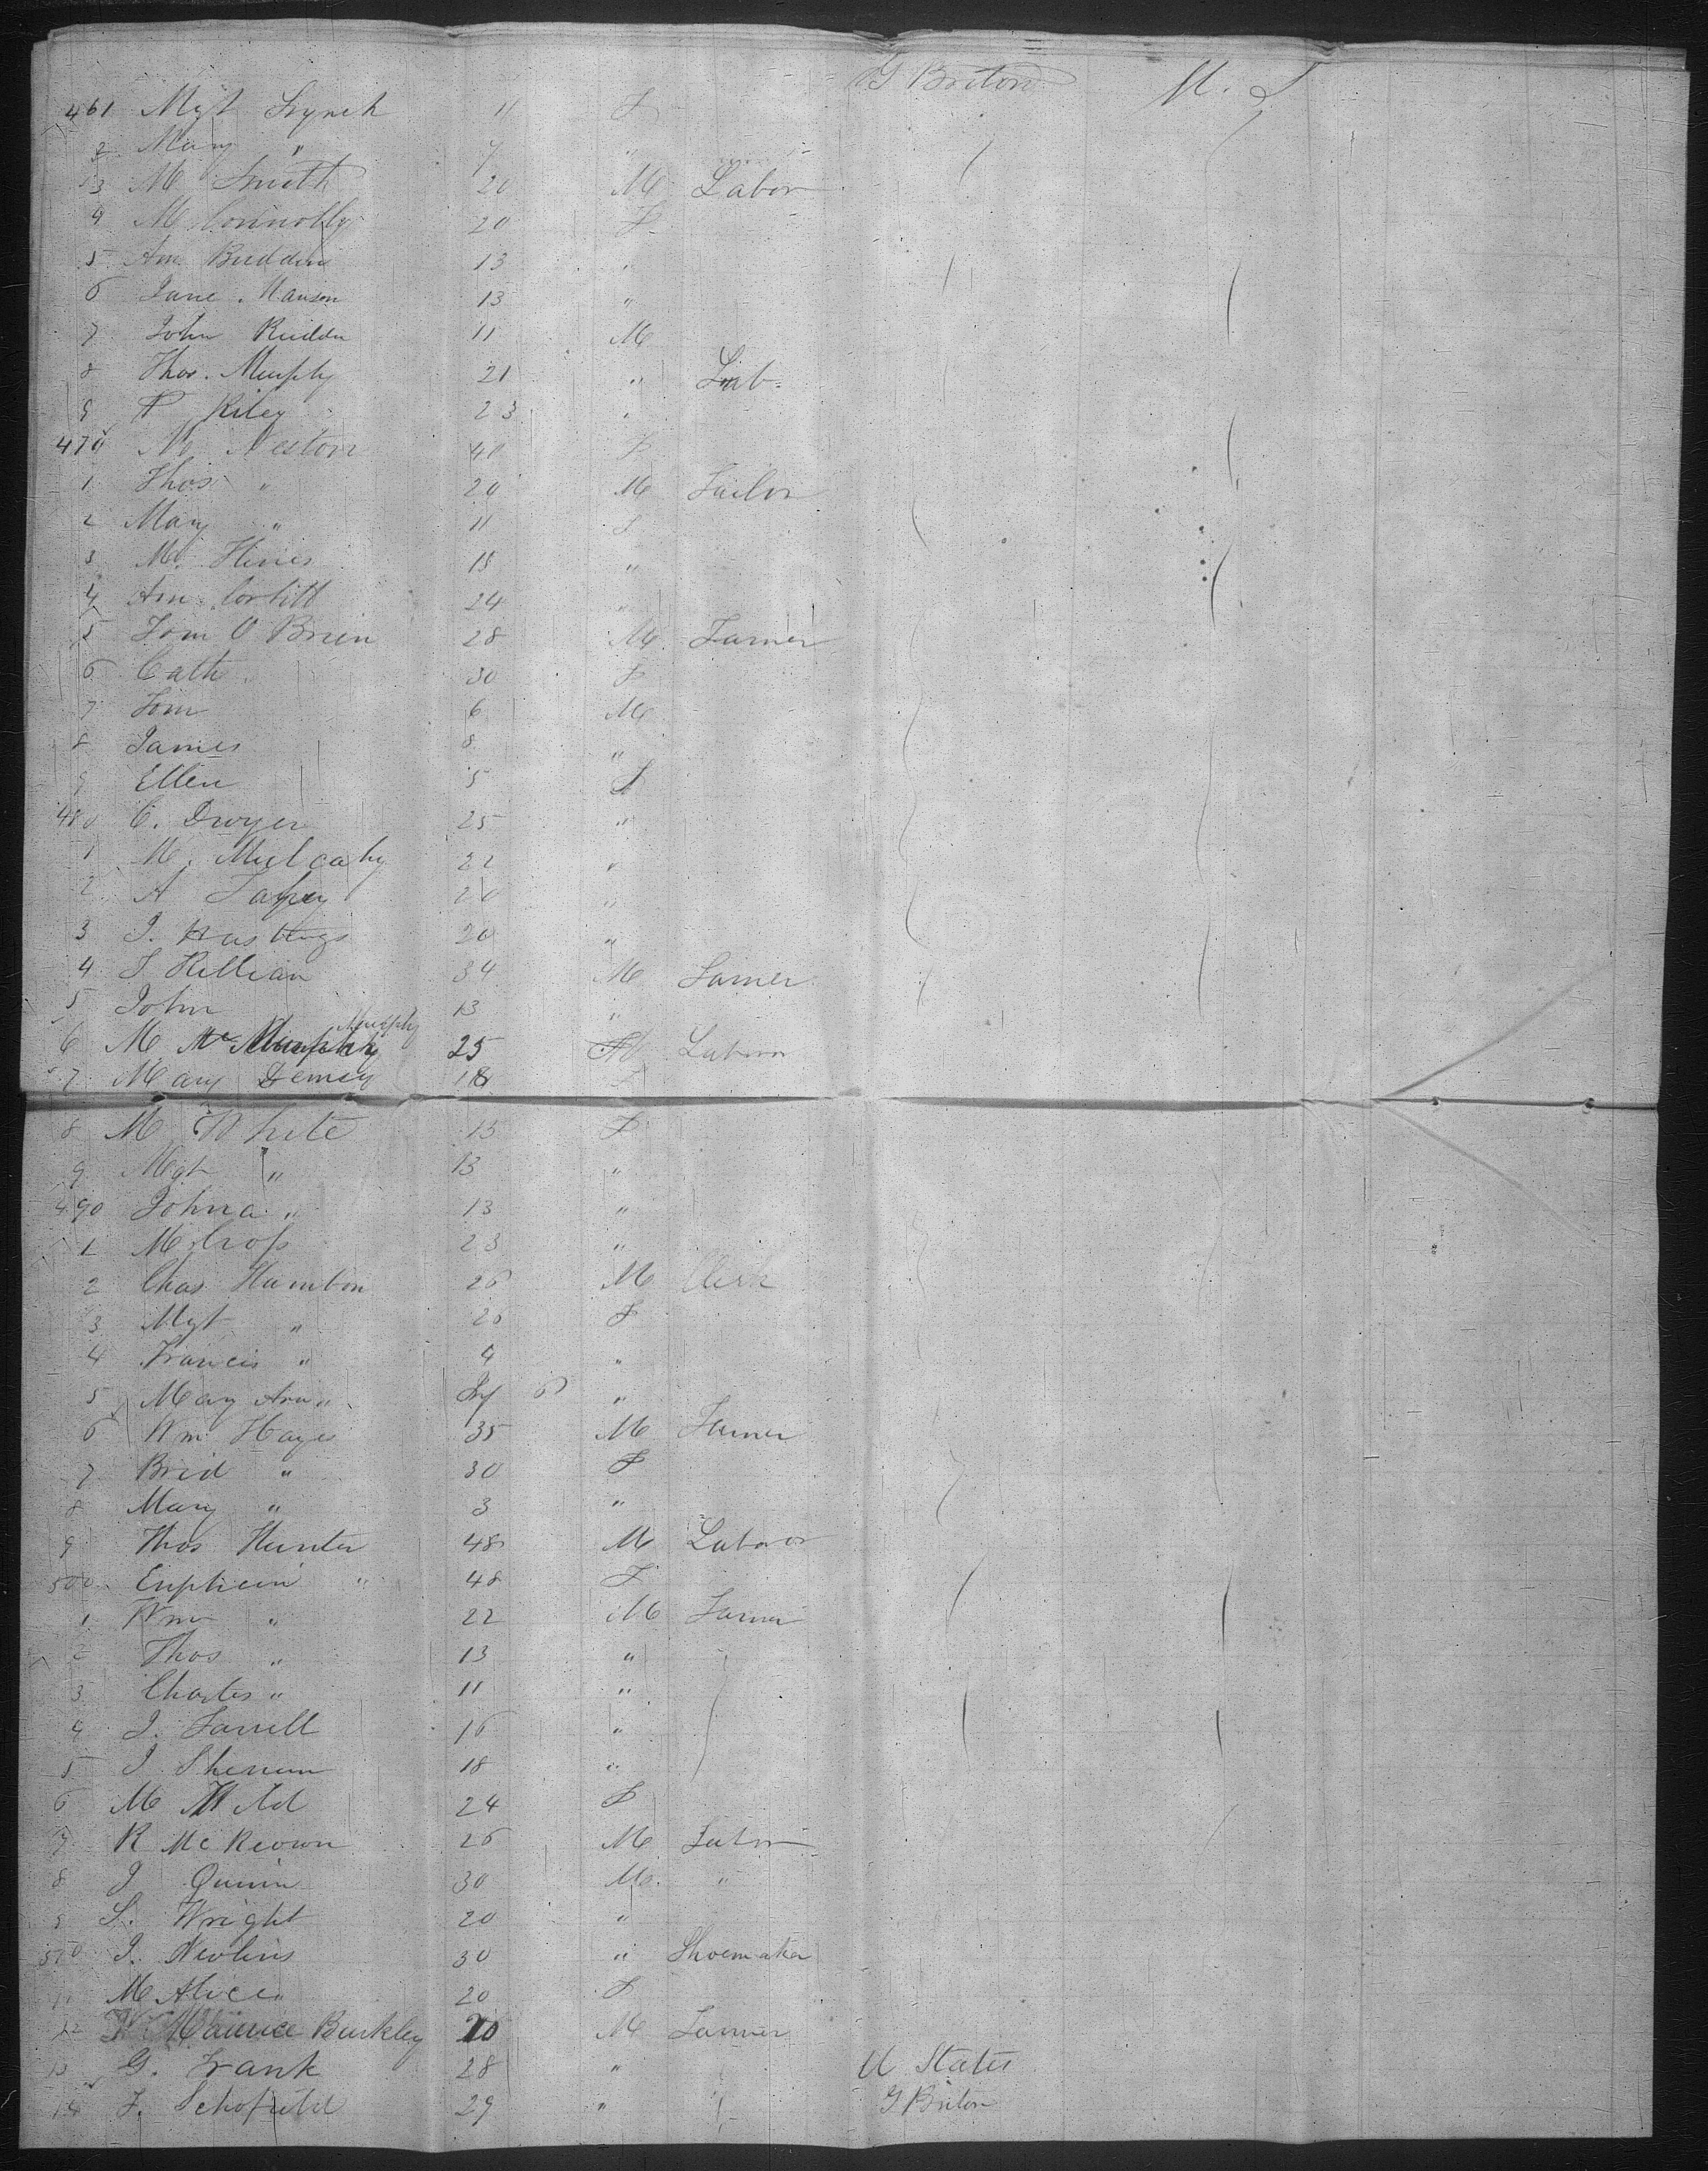 G Briton M. S
461 Mgt Lynch 11 F
2 Mary " 7 "
3 M Smith 20 M Labor
4 M Connolly 20 F
5 Ann 13 "
6 Jane Manson 13 "
7 John Rudden 11 M
8 Thos. Murphy 21 " Lab.
9 P Riley 23 "
470 M Neston 40 F
1 Thos " 20 M Tailor
2 Mary " 11 F
3 M. Hines 18 "
4 Ann Corbitt 24 "
5 Tom O Brien 28 M Farmer
6 Cath. 30 F
7 Tom 6 M
8 James 8 "
9 Ellen 5 F
480 C. Dwyer 25 "
1 M. Mulcahy 22 "
2 A Fahey 20 "
3 J. Hastings 20 "
4 J Killian 34 M Farmer
5 John 13 "
Murphy
6 M Mc Murphy 25 M Labor
7 Mary Dempsy 18 F
8 M White 13 F
9 Mgt " 13 "
490 Johna " 13 "
1 M Cross 23 "
2 Chas Hambon 26 M Clerk
3 Mgt " 26 F
4 Francis " 4 "
5 Mary Ann " Inf 6 "
6 Wm Hayes 35 M Farmer
7 Brid " 30 F
8 Mary " 3 "
9 Thos Hunter 48 M Labor
500 Euphein " 48 F
1 Wm " 22 M Farmer
2 Thos " 13 "
3 Charles " 11 "
4 J. Farrell 16 "
5 J 18 "
6 M Wild 24 F
7 R McKeown 26 M Labor
8 J Quinn 30 M. "
9 S. Wright 20 "
510 J. Nevlins 30 " Shoemaker
11 M Alice " 20 F
12 Maurice Burkley 20 M Farmer
13 G. Frank 28 " U States
14 J. Schofield 29 " G Briton